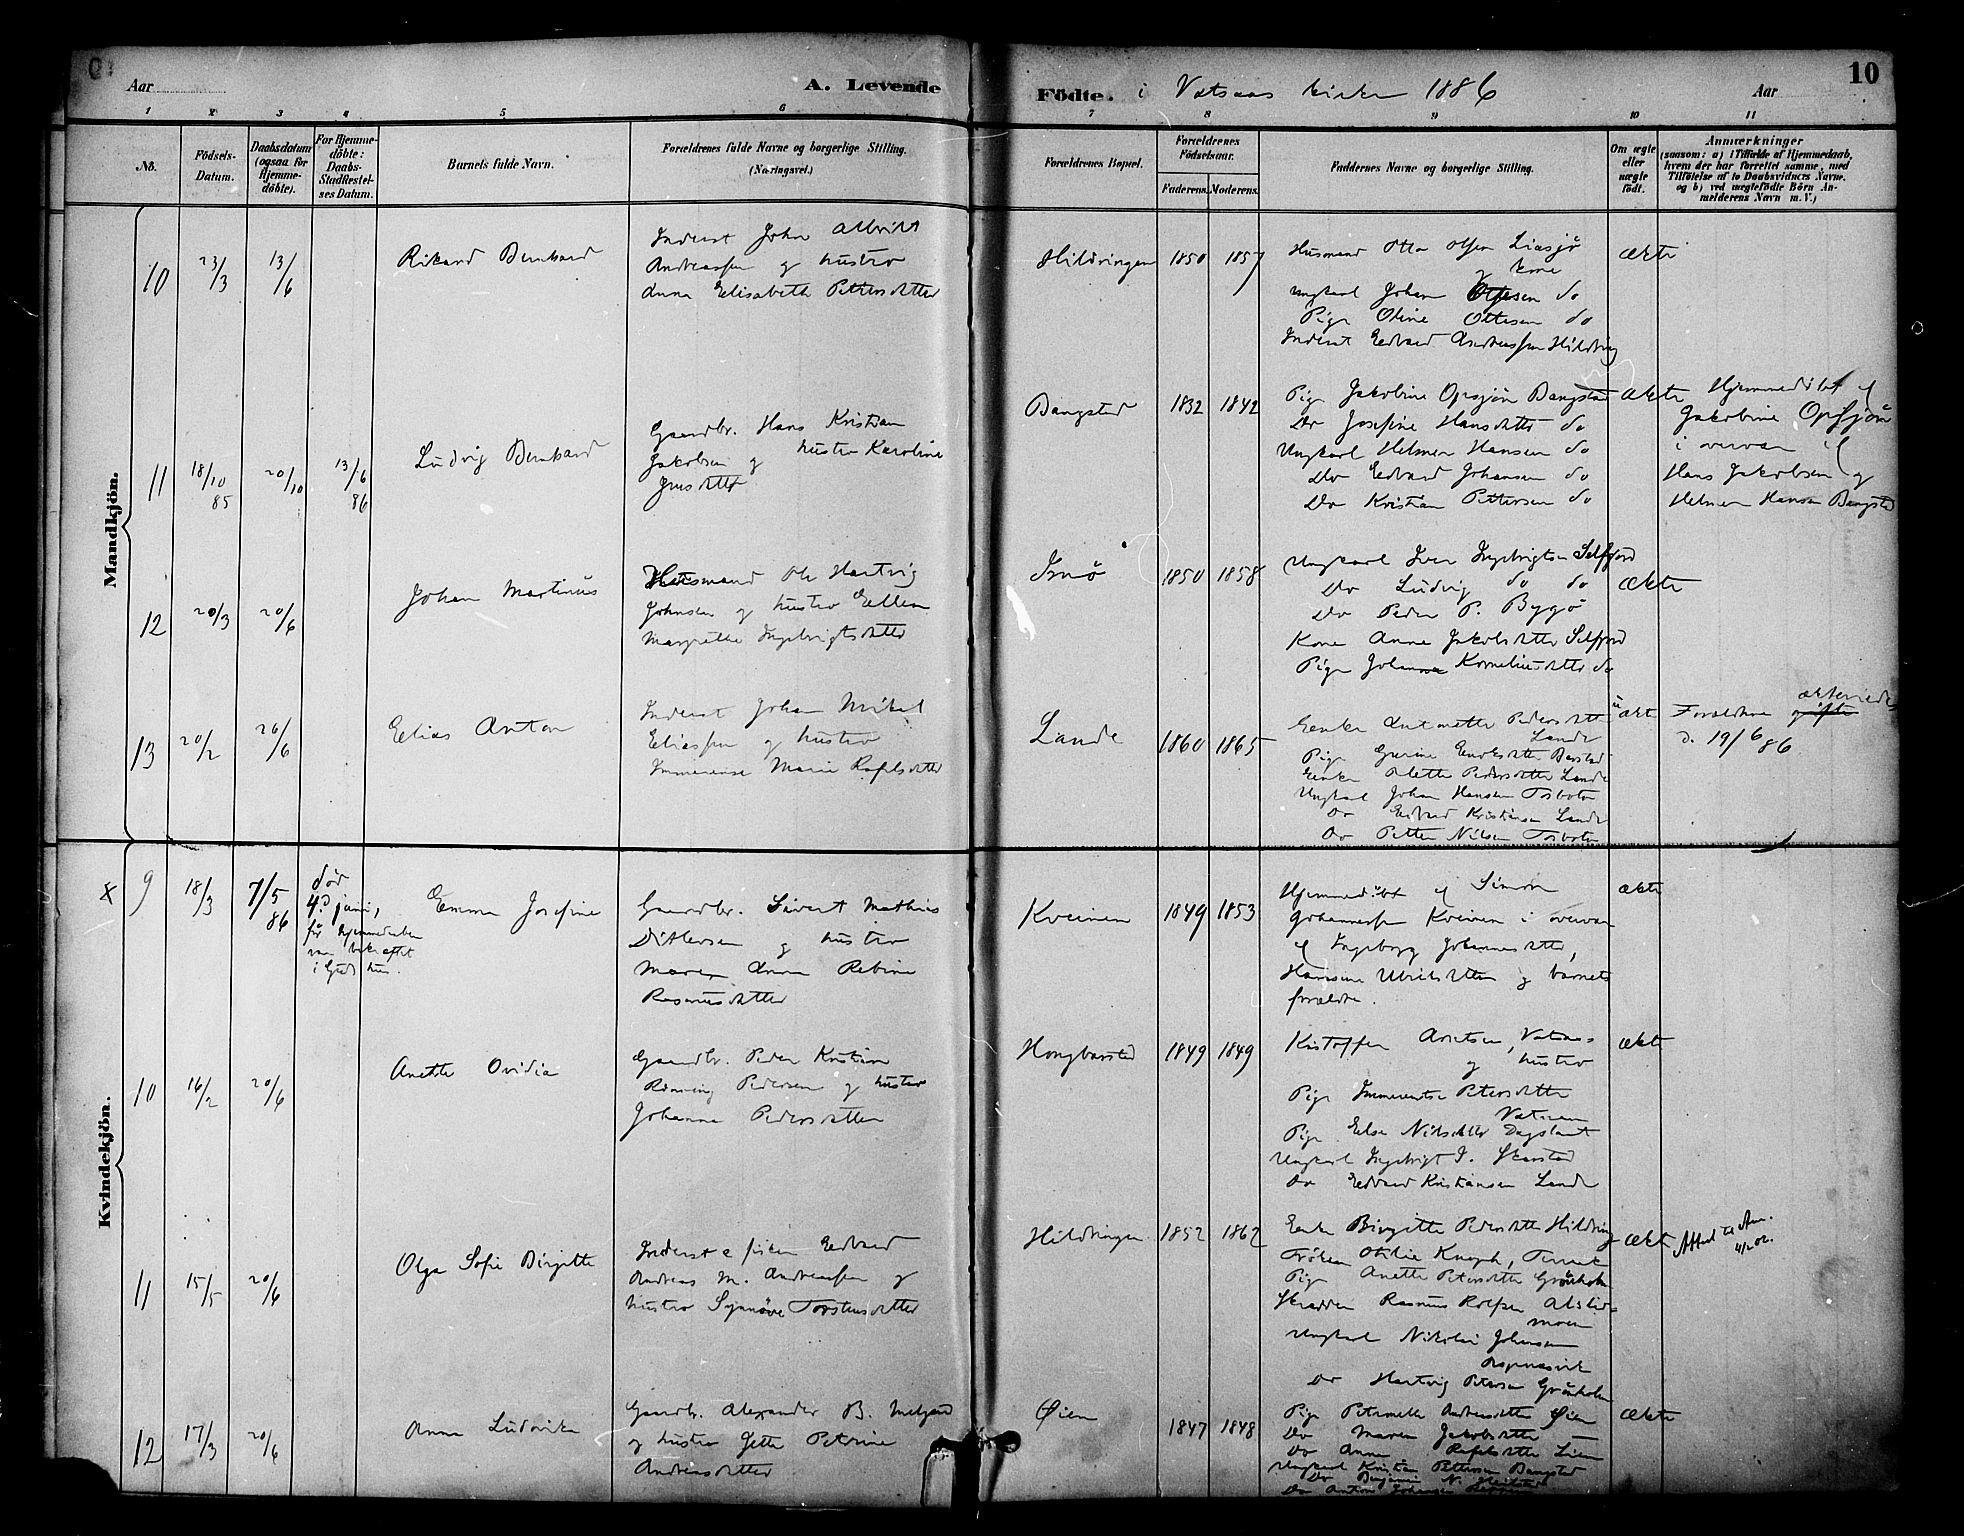 Aar
A. Levende
Födte. i Vatsaas kirke 1886
Aar
10
1 2 3 4 5 6 7 8 9 10 11
No.
Födsels-Datum.
Daabsdatum (ogsaa for Hjemme-döbte).
For Hjemme-döbte: Daabs-Stadfæstelses Datum.
Barnets fulde Navn.
Forældrenes fulde Navne og borgerlige Stilling.
(Næringsvei.)
Forældrenes Bopæl.
Forældrenes Födselsaar.
Faderens. Moderens.
Faddernes Navne og borgerlige Stilling.
Om ægte eller uægte födt.
Anmærkninger
(saasom: a) i Tilfælde af Hjemmedaab,
hvem der har forrettet samme, med
Tilföielse af to Daabsvidners Navne.
og b) ved uægtefödte Börn An-
melderens Navn m. V.)
Mandkjön.
10 23/3 13/6
Rikard Bernhard
Inderst Johan Albrikt
Andreassen og hustro
Anna Elisabeth Petersdatter
Hildringen 1850 1857
Husmand Otto Olsen Liasjø
og kone
Ungkarl Johan Ottesen do
Pige Oline Ottesen do
Inderst Edvard Andreassen Hildring
ækte
11 18/10 85 20/10 13/6 86
Ludvig Bernhard
Gaardbr. Hans Kristian
Jakobsen og hustro Karoline
Jensdatter
Bangsted 1832 1842
Pige Jakobine Opsjøn Bangstad
Do Josefine Hansdatter do
Ungkarl Helmer Hansen do
Do Edvard Johansen do
Do Kristian Pettersen do
ækte
Hjemmedöbt af
Jakobine Opsjön
i overvær af
Hans Jakobsen og
Helmer Hansen Bangsted
12 20/3 20/6
Johan Martinus
Husmand Ole Hartvig
Johnsen og hustro Ellen
Margrethe Ingebrigtsdatter
1850 1858
Ungkarl Iver Ingebrigtsen Selfjord
Do Ludvig do do
Do Peder P. Bygö
Kone Anne Jakobsdatter Selfjord
Pige Johanna Korneliusdatter do
ækte
13 20/2 26/6
Elias Anton
Inderst Johan Mikal
Eliassen og hustro
Immerense Marie Rafelsdatter
Lande 1860 1865
Enke Antonette Pedersdatter
Lande
Pige Gurine
Enke Olette Pedersdatter Lande
Ungkarl Johan Hansen Torboten
Do Edvard Kristiansen Lande
Do Petter Nilsen Torboten
Forældrene
d. 19/6 86
Kvindekjön.
x 9 18/3 7/5 86
död
4de juni,
för hjemmedaaben
var bekræftet
i Guds hus.
Emma Josefine
Gaardbr. Sivert Mathias
Ditlevsen og hustro
Maren Anna Rebine
Rasmusdatter
Kveinen 1849 1853
Hjemmedöbt af Simon
Johannessen Kveinen i overvær
af Ingeborg Johannesdatter,
Hansine Ulriksdatter og barnets
forældre.
ækte
10 16/2 20/6
Anette Ovidia
Gaardbr. Peder Kristian
Rönning Pedersen og hustro
Johanna Pedersdatter
Hongbarsted 1849 1849
Kristoffer Arntsen, Vatsaas
og hustro
Pige Immerentse Petersdatter
Vatsaas
Pige Else Nilsdatter Dagslaat
Ungkarl Ingebrigt J. Skarstad
Do Edvard Kristiansen Lande
ækte
11 15/5 20/6
Olga Sofie Birgitte
Inderst Edvard
Andreas M. Andreassen og
hustro Synnöve Torstensdatter
Hildringen 1852 1862
Enke Birgitte Pedersdatter Hildring
Fröken Otilie Knoph, Terraak
Pige Anette Petersdatter Grönholm
Skrædder Rasmus Rolfsen Alslid-
moen
Ungkarl Nikolai Johansen
Do Hartvig Petersen Grönholm
ækte
Attest til Am.
4/2 02.
12 17/3 20/6
Anna Ludovika
Gaardbr. Alexander B.
og hustro Jette Petrine
Andreasdatter
Øien 1847 1848
Pige Petronelle Andreasdatter Øien
Do Maren Jakobsdatter
Do Anne Rafelsdatter Lien
Ungkarl Kristian Pettersen Bangsted
Do Benjamin N.
Do Anton Johansen
ækte